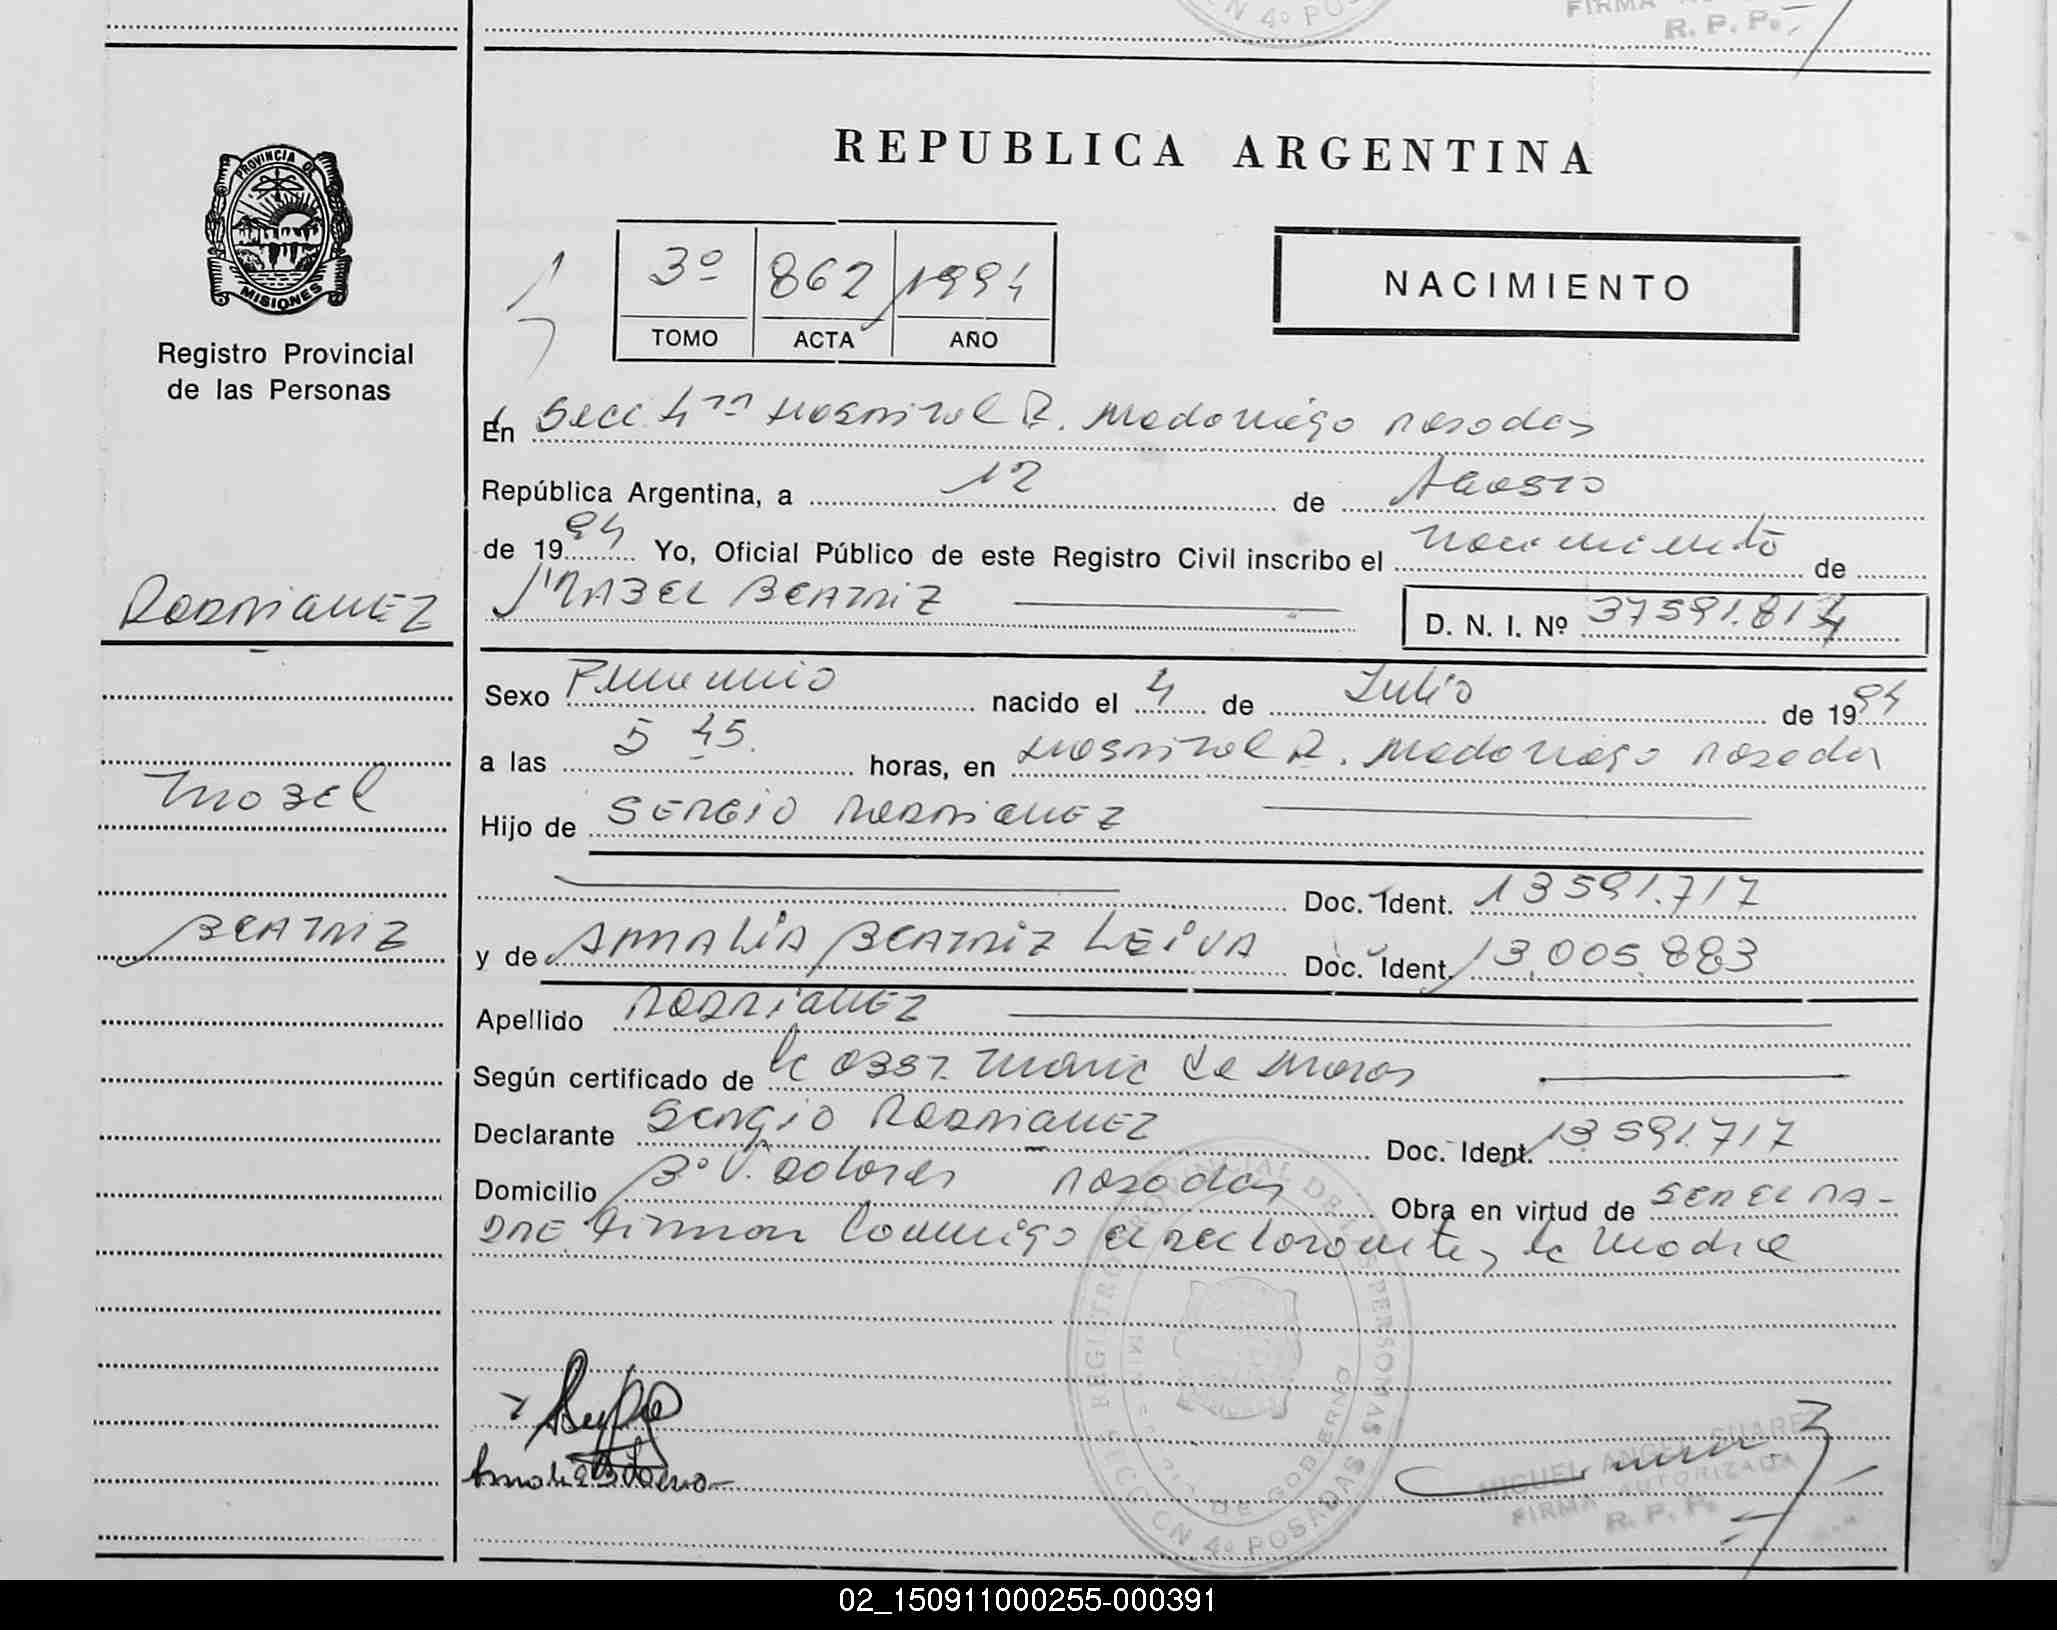 CN 4º POS
FIRMA
R. P. P.
PROVINCIA DE
MISIONES
Registro Provincial
de las Personas
REPUBLICA ARGENTINA
3º 862 1994
TOMO ACTA AÑO
NACIMIENTO
En Secc 4ta Hospital R. Madariaga Posadas
República Argentina, a 12 de Agosto
de 1994 Yo, Oficial Público de este Registro Civil inscribo el nacimiento de
MABEL BEATRIZ D. N. I. Nº 37591.814
RODRIGUEZ
Sexo Femenino nacido el 4 de Julio de 1994
a las 5 45. horas, en Hospital R. Madariaga Posadas
Mabel
Hijo de SERGIO RODRIGUEZ
Doc. Ident. 13591.717
BEATRIZ
y de AMALIA BEATRIZ LEIVA Doc. Ident. 13.005.883
Apellido RODRIGUEZ
Según certificado de la OBST. Maria de
Declarante Sergio RODRIGUEZ Doc. Ident. 13591.717
Domicilio Bº V. Dolores Posadas Obra en virtud de SER EL PA-
DRE Firman conmigo el declarante y la Madre
REGISTRO PROVINCIAL DE LAS PERSONAS
MINISTERIO DE GOBIERNO
SECCION 4º POSADAS
MIGUEL ANGEL SUAREZ
FIRMA AUTORIZADA
R. P. P.
02_150911000255-000391